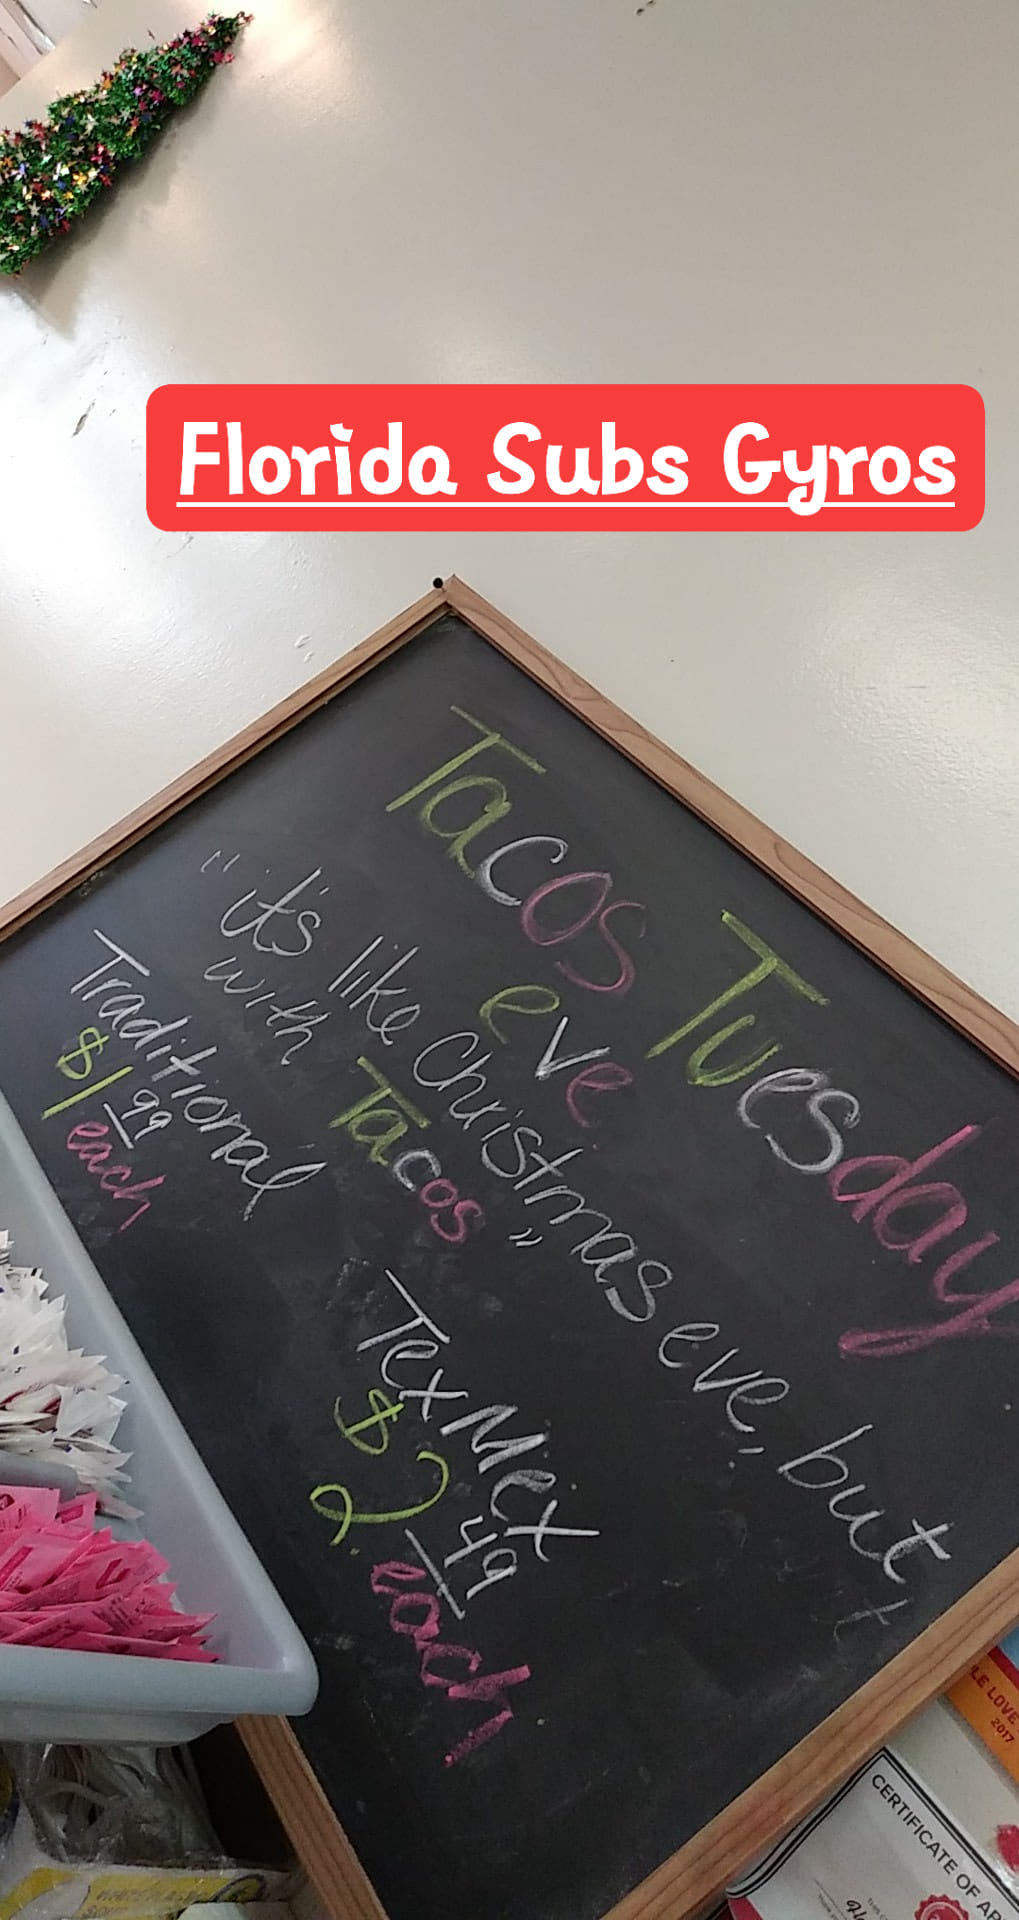 Florida Subs Gyros
Tacos Tuesday
eve
"it's like Christmas eve, but
with Tacos"
Traditional
$1.99
each
Tex Mex
$2.49
each
LE LOVE
2017
CERTIFICATE OF AP